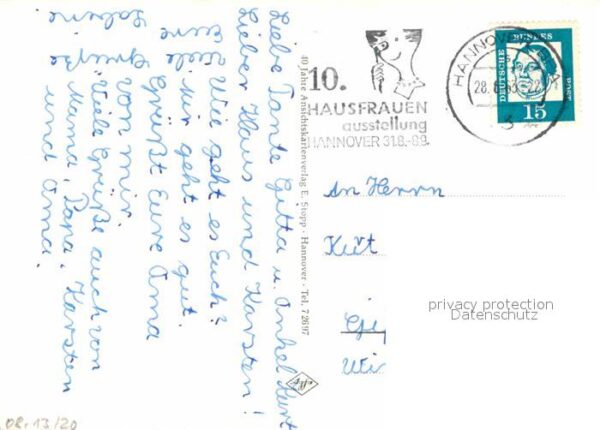 Liebe Tante Gitta u. Onkel Kurt
Lieber Klaus und Karsten!
Wie geht es Euch?
mir geht es gut.
Grüßt Eure Oma
von mir.
Viele Grüße auch von
Mama, Papa, Karsten
und Oma.
Viele
Grüße
Eure
Sabine
40 Jahre Ansichtskartenverlag E. Stopp · Hannover · Tel. 72697
10.
HAUSFRAUEN
ausstellung
HANNOVER 31.8.-9.9.
HANNOVER
DEUTSCHE BUNDESPOST
15
An Herrn
privacy protection
Datenschutz
08.13/20